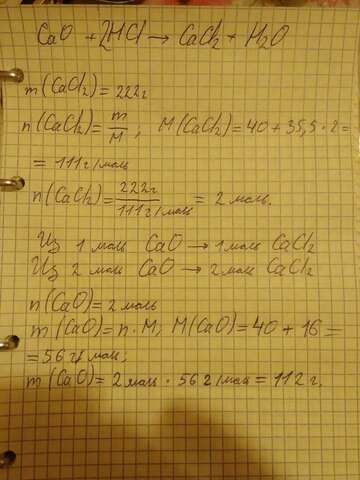 CaO + 2HCl → CaCl₂ + H₂O
m(CaCl₂) = 222г
n(CaCl₂) = m/M ; M(CaCl₂) = 40 + 35,5 · 2 =
= 111 г/моль
n(CaCl₂) = 222г / 111г/моль = 2 моль.
Из 1 моль CaO → 1 моль CaCl₂
Из 2 моль CaO → 2 моль CaCl₂
n(CaO) = 2 моль
m(CaO) = n · M; M(CaO) = 40 + 16 =
= 56 г/моль;
m(CaO) = 2 моль · 56 г/моль = 112 г.